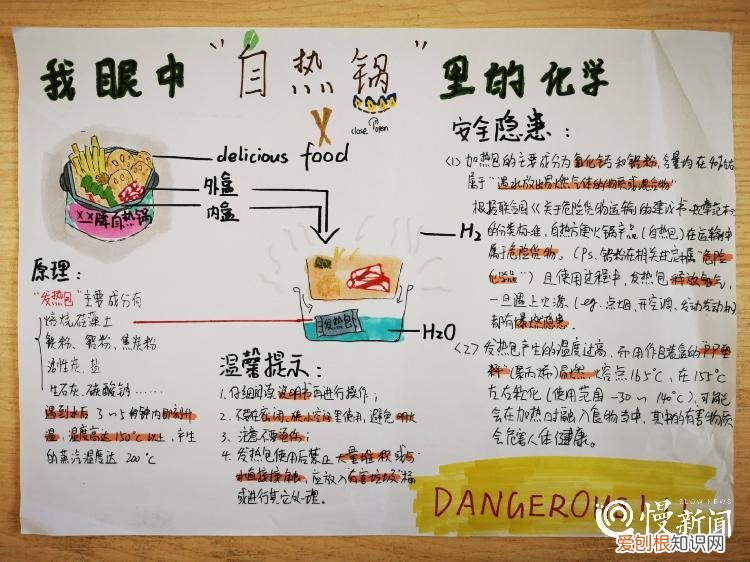 我眼中"自热锅"里的化学
close open
delicious food
外盒
内盒
XX牌自热锅
H₂
发热包
H₂O
原理:
"发热包"主要成分有
焙烧硅藻土
铁粉、铝粉、焦炭粉
活性炭、盐
生石灰、碳酸钠……
遇到水后 3~5秒钟内即刻升
温,温度高达150℃以上,产生
的蒸汽温度达 200℃
温馨提示:
1. 仔细阅读说明书再进行操作;
2. 不要在密闭、狭小空间里使用,避免明火
3. 注意不要烫伤;
4. 发热包使用后禁止大量堆积或与
水直接接触,应放入"有害垃圾"桶
或进行其它处理。
安全隐患:
<1> 加热包的主要成分为氧化钙和铝粉,含量均在
属于"遇水放出易燃气体的物质或混合物"
根据联合国《关于危险货物运输的建议书-规章范本》
的分类标准,自热方便火锅产品(自热包)在运输中
属于危险货物。(Ps. 铝粉在相关法规属"危险
化学品")且使用过程中,发热包,释放氢气,
一旦遇上火源(eg. 点烟、开空调、发动发动机)
都有爆燃隐患.
<2> 发热包产生的温度过高,而用作包装盒的"PP塑
料"(聚丙烯)易燃,熔点165℃,在155℃
左右软化(使用范围 -30~140℃),可能
会在加热时融入食物当中,其中的有害物质
会危害人体健康。
DANGEROUS!
SLOW NEWS
慢新闻
爱刨根知识网